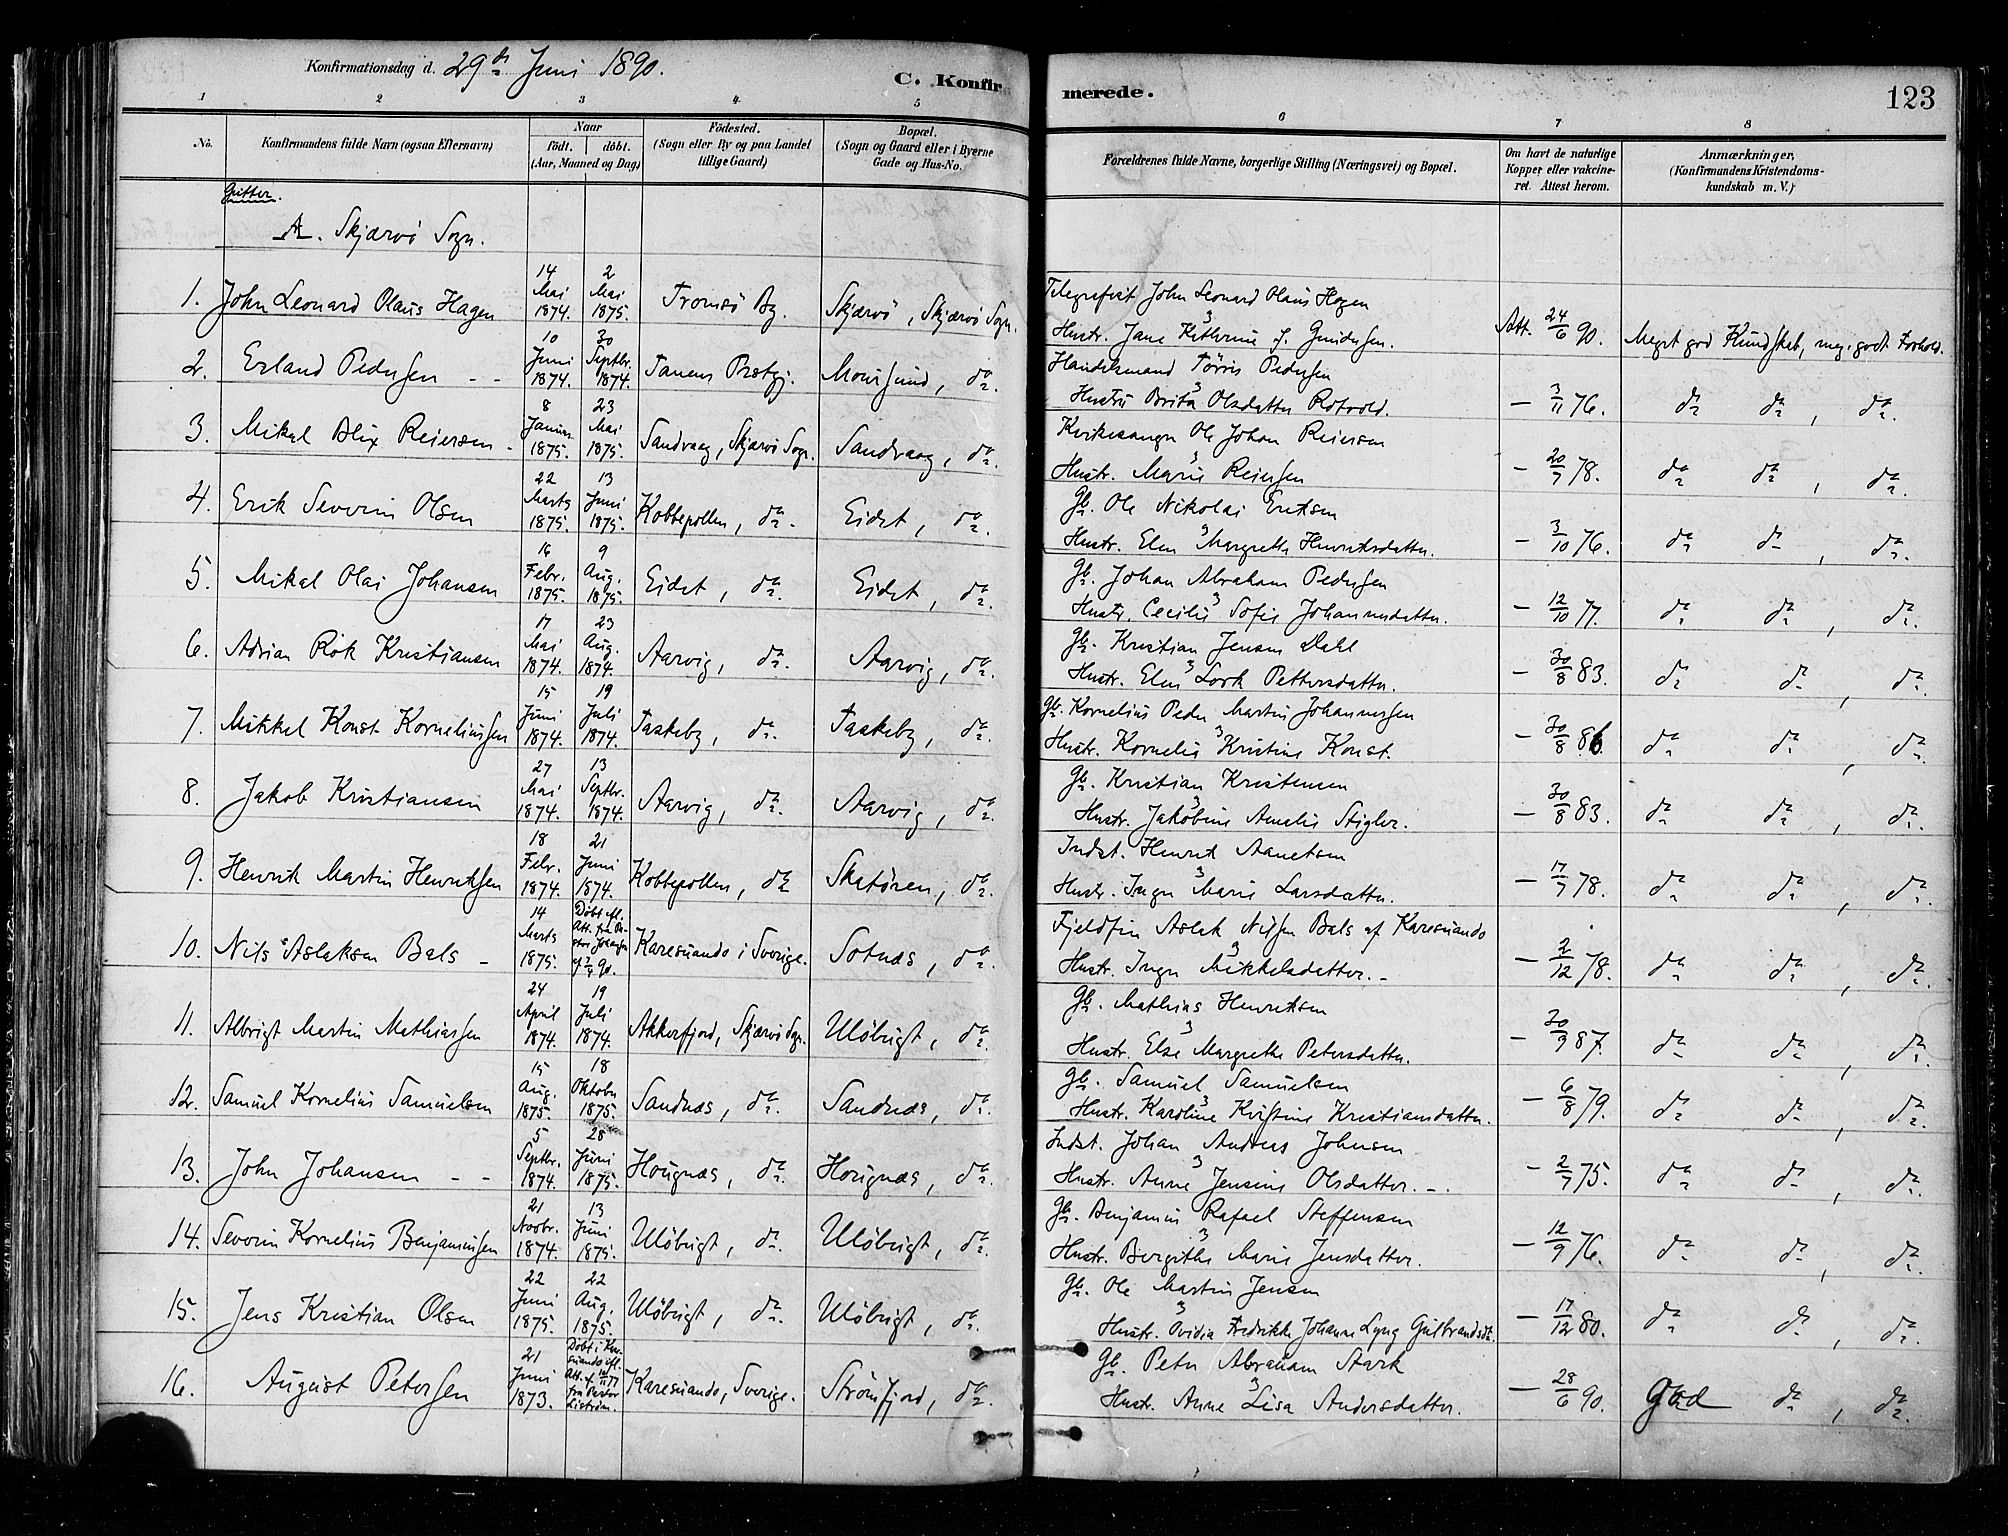 Konfirmationsdag d. 29de Juni 1890.
C. Konfirmerede.
123
1 2 3 4 5 6 7 8
No.
Konfirmandens fulde Navn (ogsaa Efternavn)
Naar
født. døbt.
(Aar, Maaned og Dag)
Födested.
(Sogn eller By og paa Landet
tillige Gaard)
Bopæl.
(Sogn og Gaard eller i Byerne
Gade og Hus-No.
Forældrenes fulde Navne, borgerlige Stilling (Næringsvei) og Bopæl.
Om havt de naturlige
Kopper eller vakcine-
ret. Attest herom.
Anmærkninger,
(Konfirmandens Kristendoms-
kundskab m. V.)
Gutter.
A. Skjærvö Sogn.
1. John Leonard Olaus Hagen 14 Mai 1874. 2 Mai 1875. Tromsö By. Skjærvö, Skjærvö Sogn.
Telegrafist John Leonard Olaus Hagen
Hustr. Jane Kathrine f. Gundersen. Att. 24/6 90. Meget god Kundskab, meg. godt Forhold.
2. Erland Pedersen - - 10 Juni 1874. 30 Septbr. 1874. Tanens Prstgj. Maursund, do.
Handelsmand Törris Pedersen
Hustru Brita Olsdatter Rotvold. - 3/11 76. do do, do.
3. Mikal Blix Reiersen - 8 Januar 1875. 23 Mai 1875. Sandvaag, Skjærvö Sogn. Sandvaag, do.
Ole Johan Reiersen
Hustr. Marie Reiersen - 20/7 78. do do, do.
4. Erik Severin Olsen 22 Marts 1875. 13 Juni 1875. Kobbepollen, do. Eidet, do.
Gb. Ole Nikolai Eriksen
Hustr. Elen Margrethe Henriksdatter. - 3/10 76. do do, do.
5. Mikal Olai Johansen 16 Febr. 1875. 9 Aug. 1875. Eidet, do. Eidet, do.
Gb. Johan Abraham Pedersen
Hustr. Cecilie Sofie Johannesdatter. - 12/10 77. do do, do.
6. Adrian Rök Kristiansen 17 Mai 1874. 23 Aug. 1874. Aarvig, do. Aarvig, do.
Gb. Kristian Jensen Dahl
Hustr. Elen Lork Pettersdatter. - 30/8 83. do do, do.
7. Mikkel Konst Korneliussen 15 Juni 1874. 19 Juli 1874. Taskeby, do. Taskeby, do.
Gb. Kornelius Peder Martin Johannessen
Hustr. Kornelia Kristine Konst. - 30/8 86. do do, do.
8. Jakob Kristiansen 27 Mai 1874. 13 Septbr. 1874. Aarvig, do. Aarvig, do.
Gb. Kristian Kristensen
Hustr. Jakobine Amalie Stigler. - 30/8 83. do do, do.
9. Henrik Martin Henriksen 18 Febr. 1874. 21 Juni 1874. Kobbepollen, do. Skatören, do.
Indst. Henrik Aanetsen
Hustr. Inger Marie Larsdatter. - 17/7 78. do do, do.
10. Nils Aslaksen Bals - 14 Marts 1875. Döbt efl. Att. fra Karesuando i Sverige. Sotnæs, do.
Fjeldfin Aslak Nilsen Bals af Karesuando
Hustr. Inger Mikkelsdatter. - - 2/12 78. do do, do.
11. Albrigt Martin Mathiassen 24 April 1874. 19 Juli 1874. Akkerfjord, Skjærvö Sgn. Ulöbugt, do.
Gb. Mathias Henriksen
Hustr. Else Margrethe Petersdatter. - 30/9 87. do do, do.
12. Samuel Kornelius Samuelsen 15 Aug. 1875. 18 Oktober 1875. Sandnæs, do. Sandnæs, do.
Gb. Samuel Samuelsen
Hustr. Karoline Kristine Kristiansdatter. - 6/8 79. do do, do.
13. John Johansen - - 5 Septbr. 1874. 28 Juni 1875. Hougnæs, do. Hougnæs, do.
Indst. Johan Andreas Johnsen
Hustr. Anne Jensine Olsdatter. - . - 2/7 75. do do, do.
14. Severin Kornelius Benjaminsen 21 Novbr. 1874. 13 Juni 1875. Ulöbugt, do. Ulöbugt, do.
Gb. Benjamin Rafael Steffensen
Hustr. Bergithe Marie Jensdatter. - 12/9 76. do do, do.
15. Jens Kristian Olsen 22 Juni 1875. 22 Aug. 1875. Ulöbugt, do. Ulöbugt, do.
Gb. Ole Martin Jensen
Hustr. Ovidia Fredrikke Johanne Lyng Gulbrandsdt. - 17/12 80. do do, do.
16. August Petersen 21 Juni 1873. Döbt i Karesuando efl. Att. fra Pastor Karesuando, Sverige. Strömfjord, do.
Gb. Peter Abraham Stark
Hustr. Anne Lisa Andersdatter. - 28/6 90. God do, do.